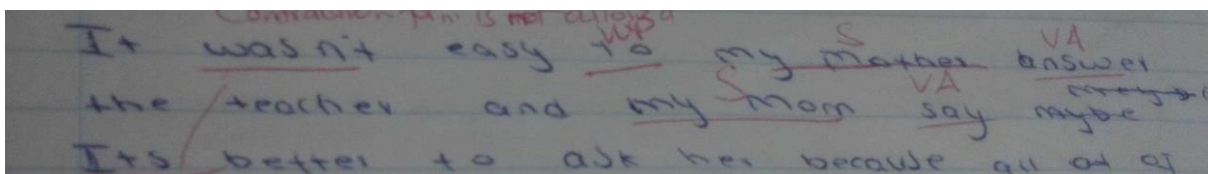 Contraction is not allowed
WP S VA
It wasn't easy to my mother answer
S VA
the teacher and my mom say mybe
Its better to ask her because all of